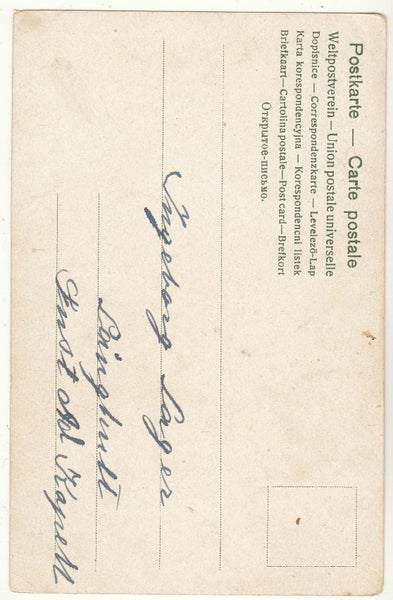 Postkarte — Carte postale
Weltpostverein — Union postale universelle
Dopisnice — Correspondenzkarte — Levelező-Lap
Karta korespondencyjna — Korespondencni listek
Briefkaart—Cartolina postale—Post card—Brefkort
Открытое-письмо.
Ingeborg Lager
Långhult